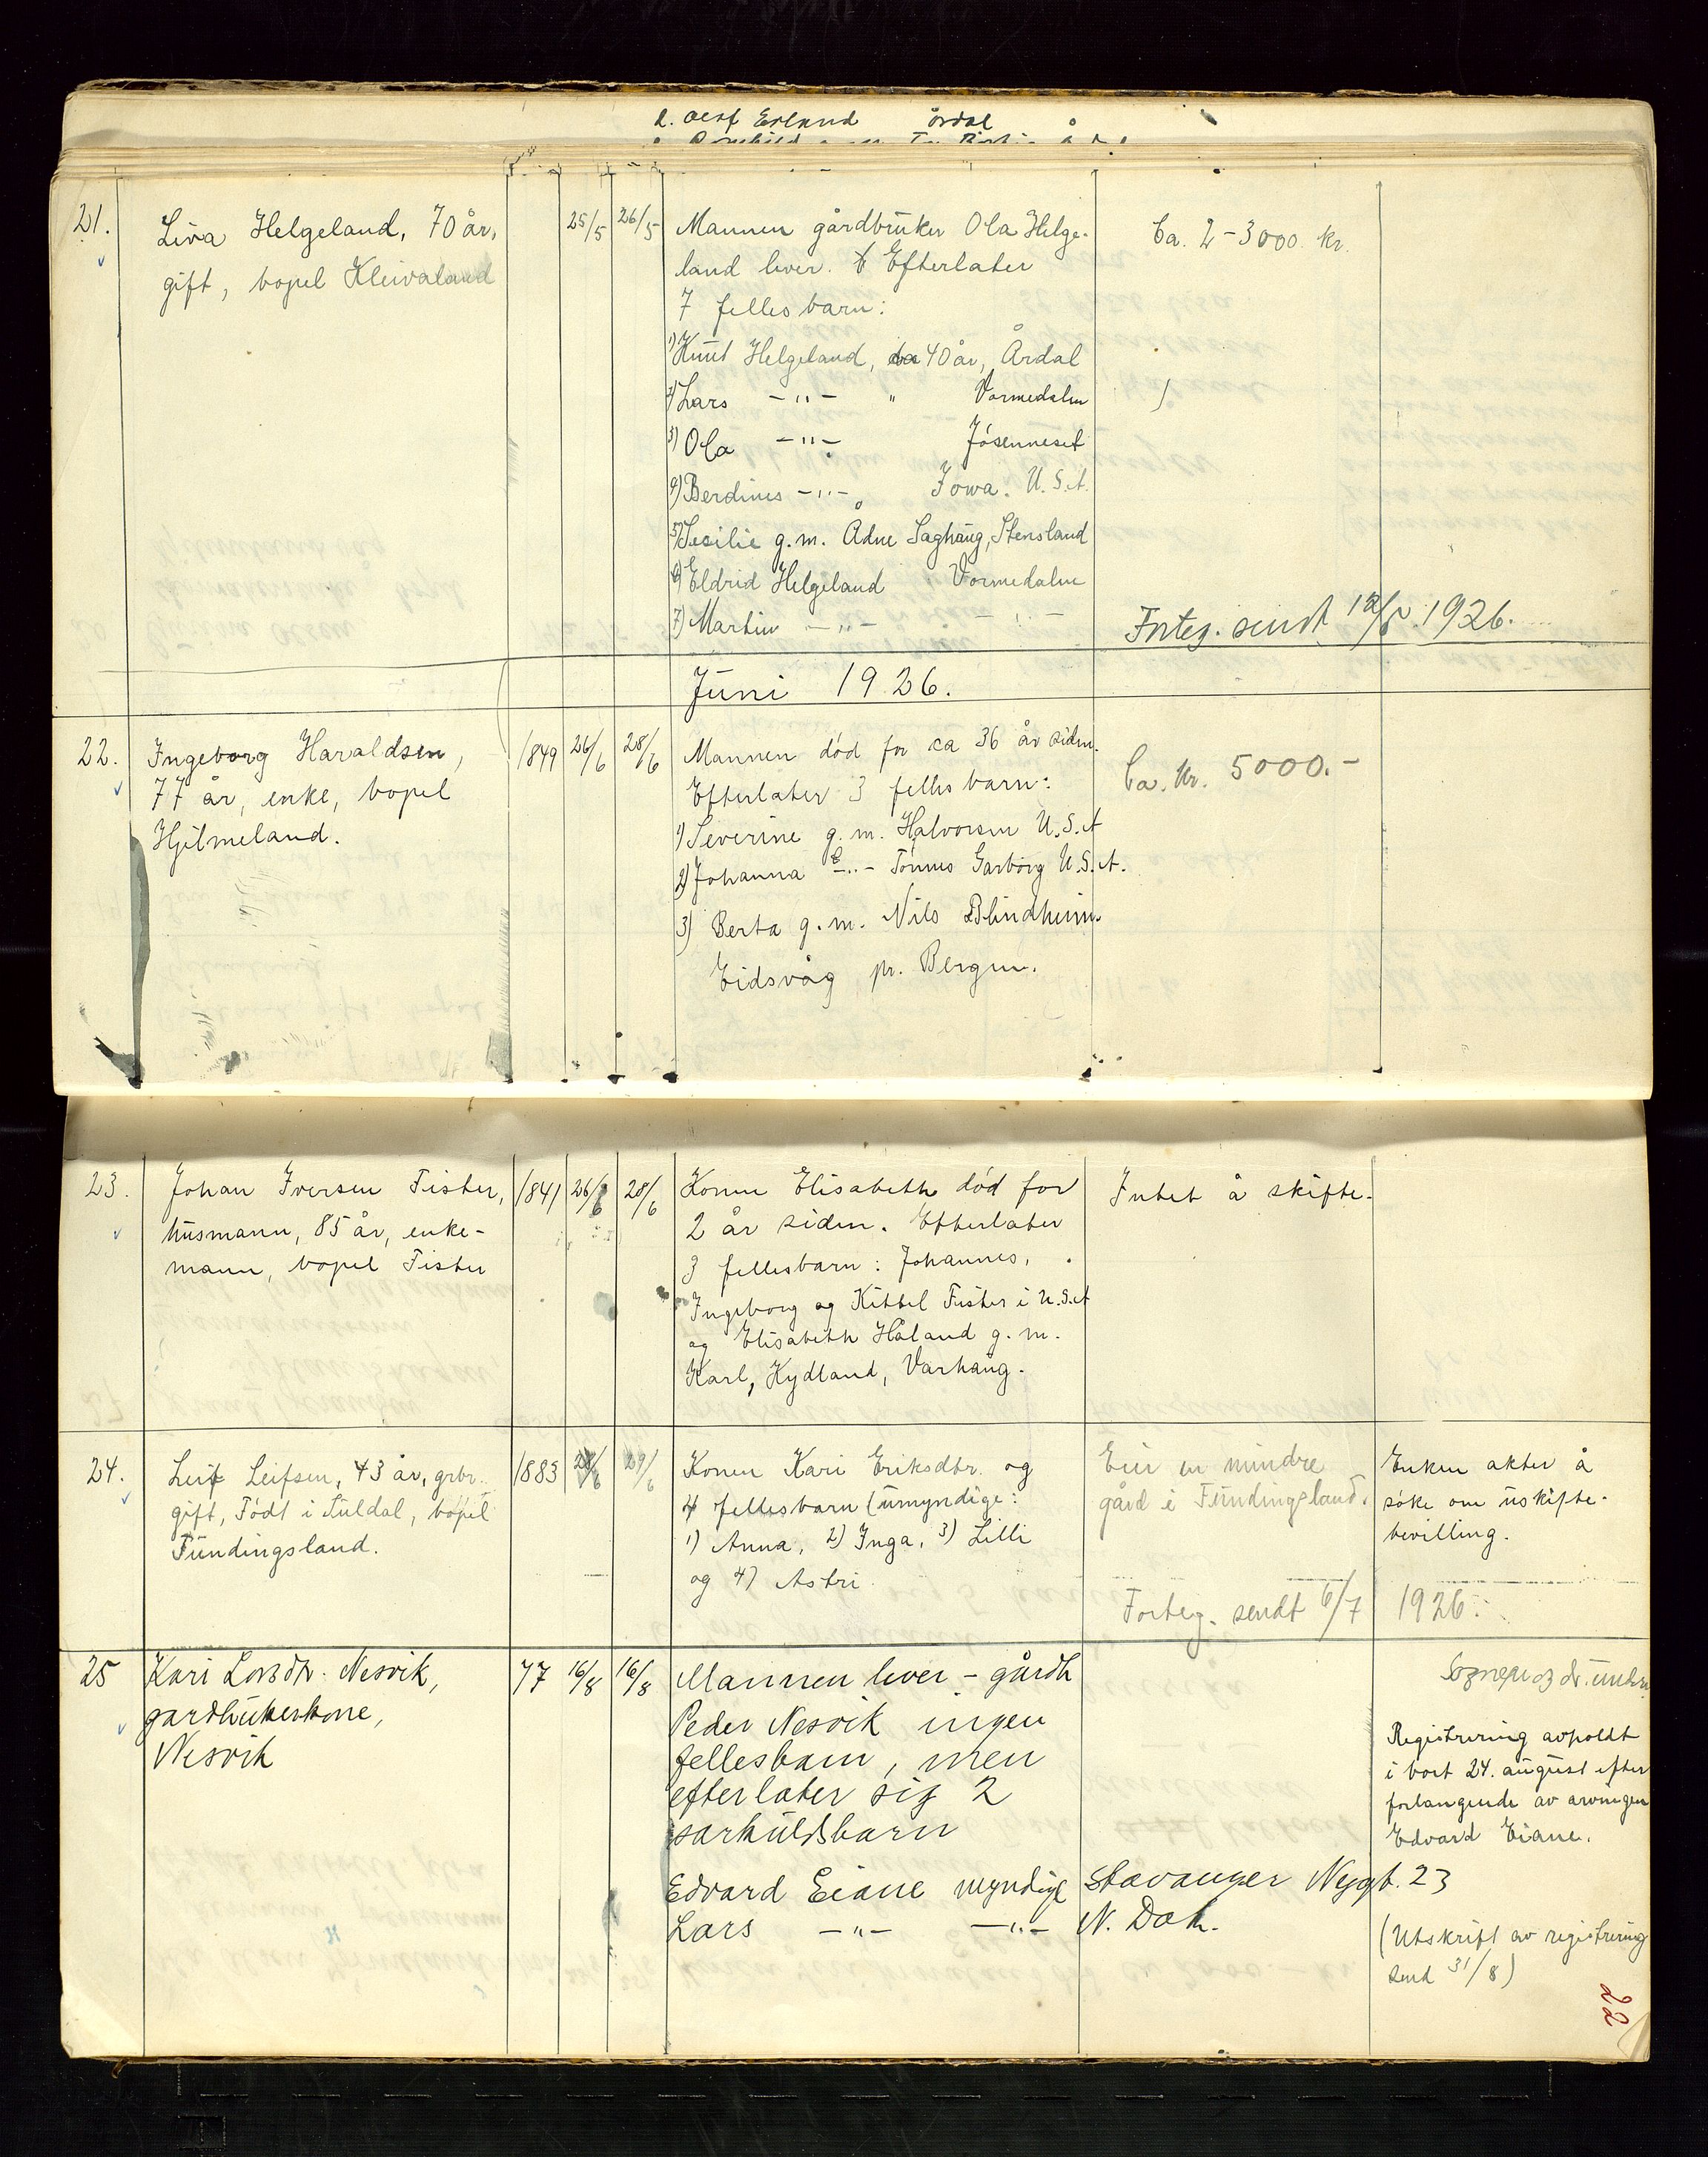 d. Olaf Erland Årdal
21.
Liva Helgeland, 70 år,
gift, bopel Kleivaland
25/5 26/5
Mannen gårdbruker Ola Helge-
land lever. Efterlater
7 fellesbarn:
1) Knut Helgeland, 40 år, Årdal
2) Lars -"- " Vormedalen
3) Ola -"- Jøsenneset
4) Berdines -"- Iowa. U.S.A.
5) Secilie g.m. Ådne Saghaug, Stensland
6) Eldrid Helgeland Vormedalen
7) Martin -"- -"-
Ca. 2-3000 kr.
Forteg. sendt 12/6 1926.
Juni 1926.
22.
Ingeborg Haraldsen,
77 år, enke, bopel
Hjelmeland.
1849 26/6 28/6
Mannen død for ca 36 år siden.
Efterlater 3 fellesbarn:
1) Severine g.m. Halvorsen U.S.A
2) Johanna -"- Tønnes Garborg U.S.A.
3) Berta g.m. Nils Blindheim
Eidsvåg pr. Bergen.
Ca. kr. 5000.-
23.
Johan Iversen Fister,
husmann, 85 år, enke-
mann, bopel Fister
1841 26/6 28/6
Konen Elisabeth død for
2 år siden. Efterlater
3 fellesbarn: Johannes,
Ingeborg og Kittel Fister i U.S.A
og Elisabeth Håland g.m.
Karl, Kydland, Varhaug.
Intet å skifte.
24.
Leif Leifsen, 43 år, grbr.
gift, Født i Suldal, bopel
Fundingsland.
1883 28/6 29/6
Konen Kari Eriksdtr. og
4 fellesbarn (umyndige:
1) Anna, 2) Inga, 3) Lilli
og 4) Astri
Eier en mindre
gård i Fundingsland.
Enken akter å
søke om uskifte-
bevilling.
Forteg. sendt 6/7 1926.
25
Kari Larsdtr. Nesvik,
gardbrukerkone,
Nesvik
77 16/8 16/8
Mannen lever - gårdb
Peder Nesvik ingen
fellesbarn, men
efterlater sig 2
særkuldsbarn
Edvard Eiane myndige Stavanger Nygt. 23
Lars -"- -"- N. Dak.
Registrering avholdt
i bort 24. august efter
forlangende av arvingen
Edvard Eiane.
(Utskrift av registrering
send 31/8)
22